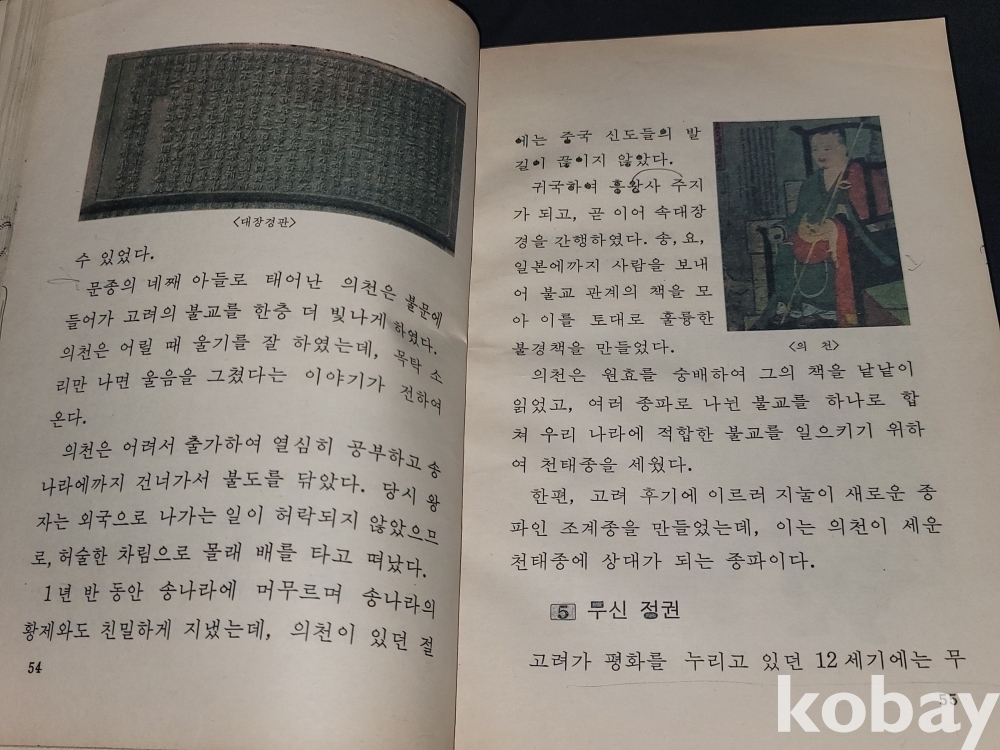 <대장경판>
수 있었다.
문종의 네째 아들로 태어난 의천은 불문에
들어가 고려의 불교를 한층 더 빛나게 하였다.
의천은 어릴 때 울기를 잘 하였는데, 목탁 소
리만 나면 울음을 그쳤다는 이야기가 전하여
온다.
의천은 어려서 출가하여 열심히 공부하고 송
나라에까지 건너가서 불도를 닦았다. 당시 왕
자는 외국으로 나가는 일이 허락되지 않았으므
로, 허술한 차림으로 몰래 배를 타고 떠났다.
1년 반 동안 송나라에 머무르며 송나라의
황제와도 친밀하게 지냈는데, 의천이 있던 절
54
에는 중국 신도들의 발
길이 끊이지 않았다.
귀국하여 흥왕사 주지
가 되고, 곧 이어 속대장
경을 간행하였다. 송, 요,
일본에까지 사람을 보내
어 불교 관계의 책을 모
아 이를 토대로 훌륭한
불경책을 만들었다.
<의 천>
의천은 원효를 숭배하여 그의 책을 낱낱이
읽었고, 여러 종파로 나뉜 불교를 하나로 합
쳐 우리 나라에 적합한 불교를 일으키기 위하
여 천태종을 세웠다.
한편, 고려 후기에 이르러 지눌이 새로운 종
파인 조계종을 만들었는데, 이는 의천이 세운
천태종에 상대가 되는 종파이다.
5 무신 정권
고려가 평화를 누리고 있던 12세기에는 무
55
kobay